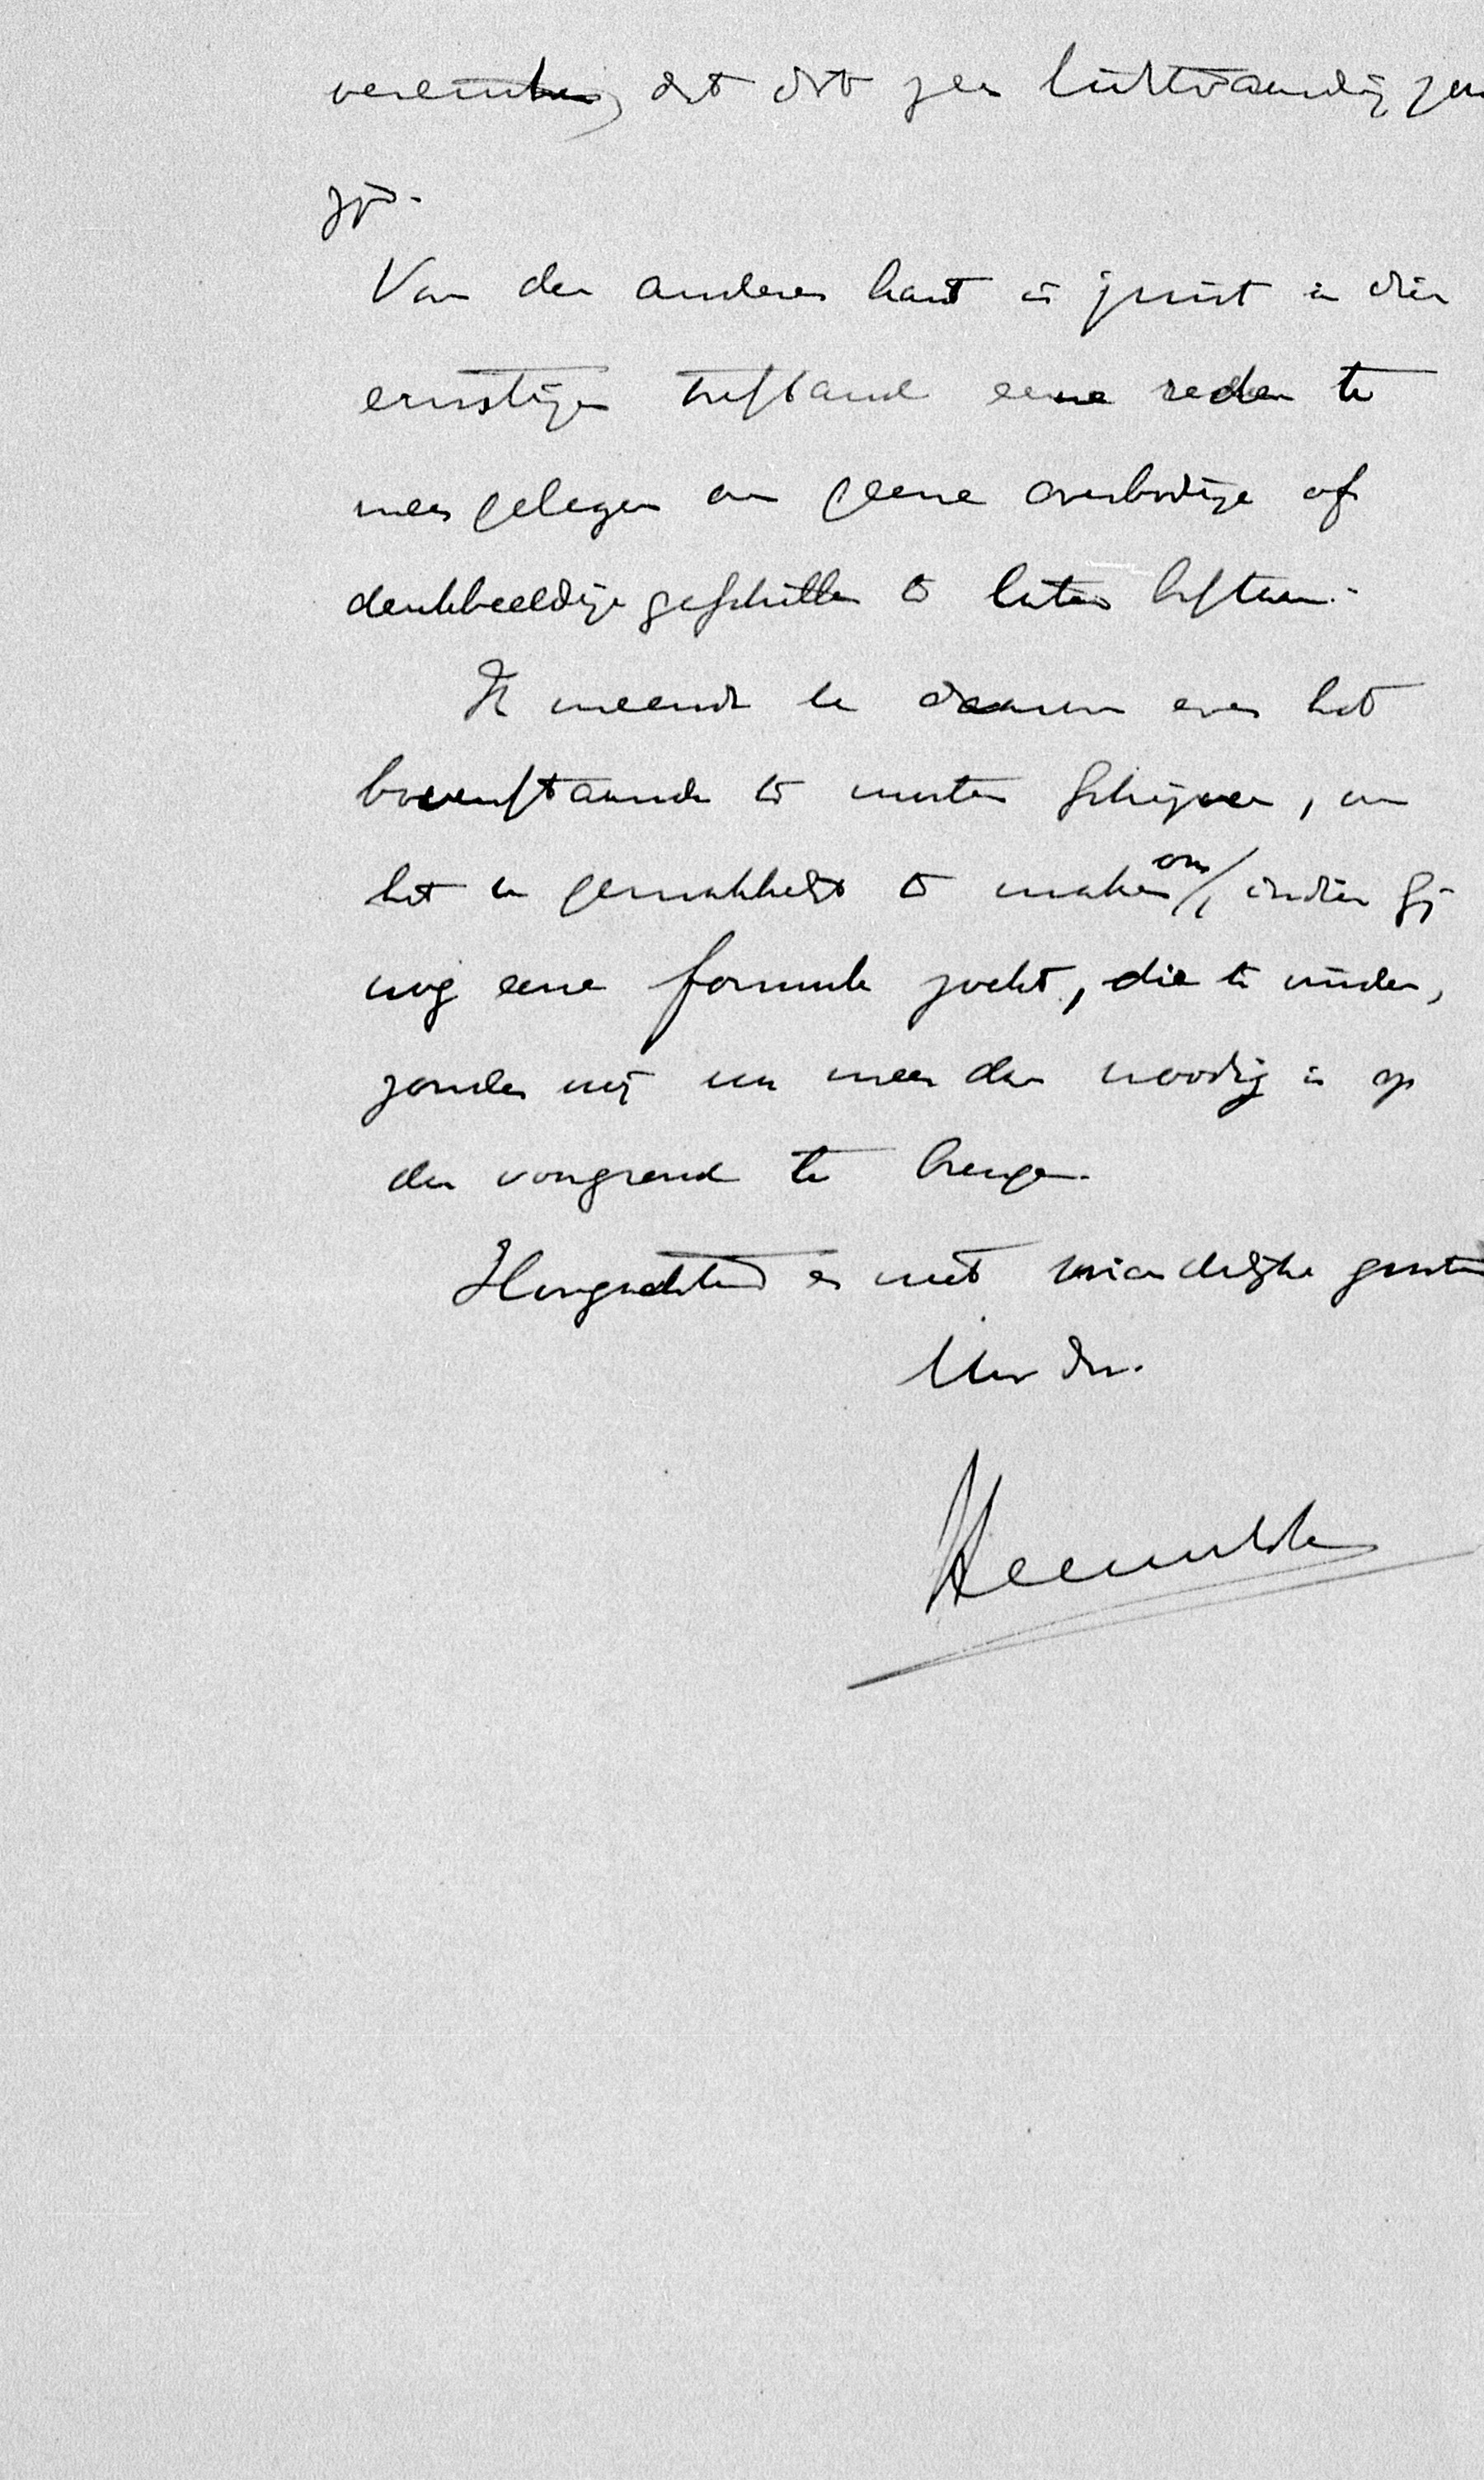 dat dat geen lichtvaardig
zijn.
Van den anderen kant is juist in dien
ernstigen toestand eene reden te
meer gelegen om geene overbodige of
denkbeeldige geschillen te laten bestaan.
Ik meende u daarom even het
bovenstaande te moeten schrijven, om
het u gemakkelijk te maken om, indien gij
nog eene formule zoekt, die te vinden,
zonder mij nu meer dan noodig is op
den voorgrond te brengen.
Hoogachtend en met vriendelijke groeten
Uw dn.
Heemskerk